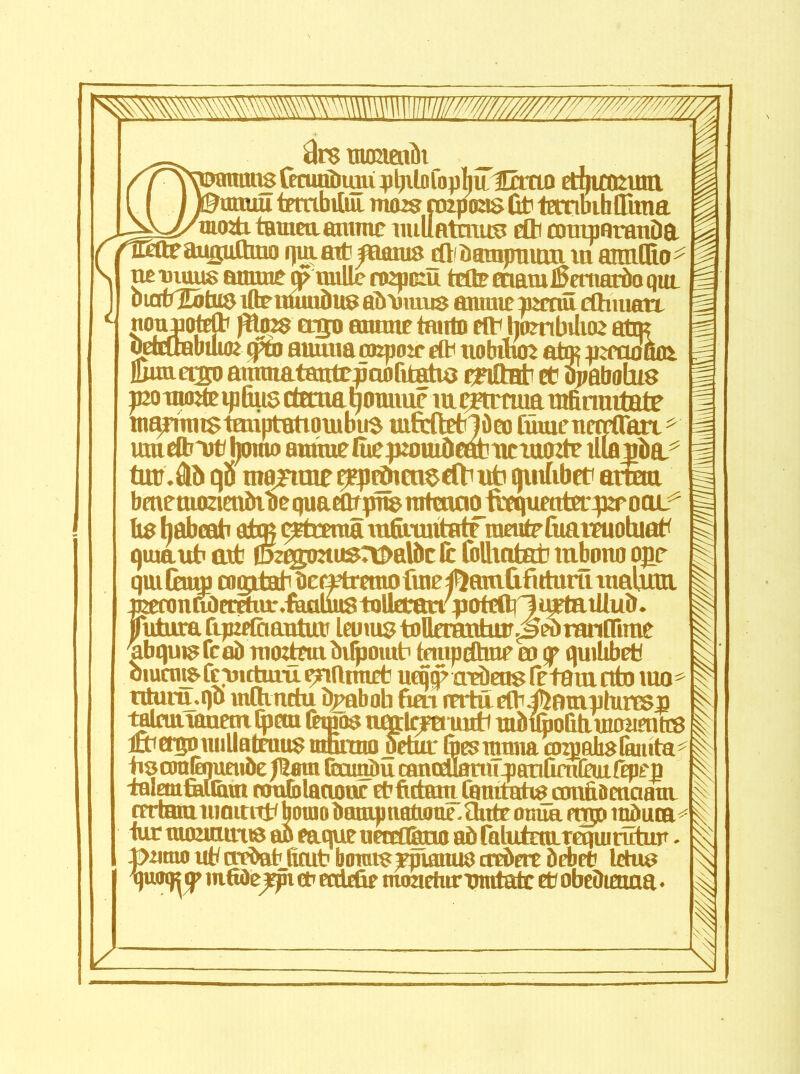 Ars moriendi
Quamuis secundum philosophū Tertio ethicorum
Omniū terribiliū mors corporis sit terribilissima
morti tamen anime nullatenus est comparanda
Teste augustino qui ait Maius est dampnum in amissio-
ne vnius anime qꝫ mille corporū teste etiam Bernardo qui
dicit Totus iste mundus ad vnius anime preciū estimari
non potest Mors ergo anime tanto est horribilior atqꝫ
detestabilior qꝫto anima corpore est nobilior atqꝫ preciosior
Cum ergo anima tante preciositatis existat et dyabolus
pro morte ipsius eterna homine in extrema infirmitate
maximis temptationibus infestet Ideo summe necessari-
um est vt homo anime sue prouideat ne morte illa pda-
tur. Ad qd maxime expediens est ut quilibet artem
bene moriendi de qua est pn̄s intencio frequenter pre ocu-
lis habeat atqꝫ extremā infirmitatē mente sua reuoluat
quia ut ait Gregorius Valde se sollicitat in bono ope
qui semp cogitat de extremo fine Nam si futurū malum
preconsideretur facilius tollerari potest Iuxta illud.
Futura si presciantur leuius tollerantur Sed rarissime
abquis se ad mortem disponit tempestiue eo qꝫ quilibet
diucius se victurū existimet neqꝫ credens se tam cito mo-
riturū. qd instinctu dyaboli fieri certū est Nam plures p
talem inanem spem seipos neglexerunt indispositi morientes
Et ergo nullatenus infirmo detur spes nimia corpalis sanita-
tis consequende Nam secundū cancellariū parisiensem sepe p
talem falsam consolacionē et fictam sanitatis confidenciam
certam incurrit homo dampnationē. Ante omnia ergo induca-
tur moriturus ad ea que necessario ad salutem requiruntur.
Primo ut credat sicut bonus xpianus credere debet letus
quoqꝫ qꝫ in fide xpi et ecclesie morietur vnitate et obediencia.